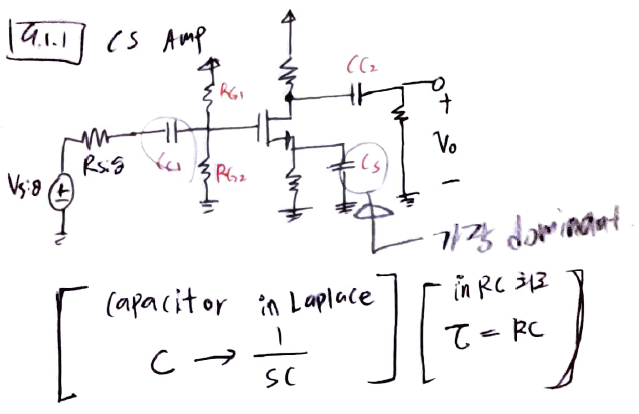 9.1.1 CS Amp
RG1
CC2
+
Vo
-
Rsig
CC1
RG2
CS
Vsig
+
가장 dominant
capacitor in Laplace
C → 1/SC
in RC 회로
τ = RC